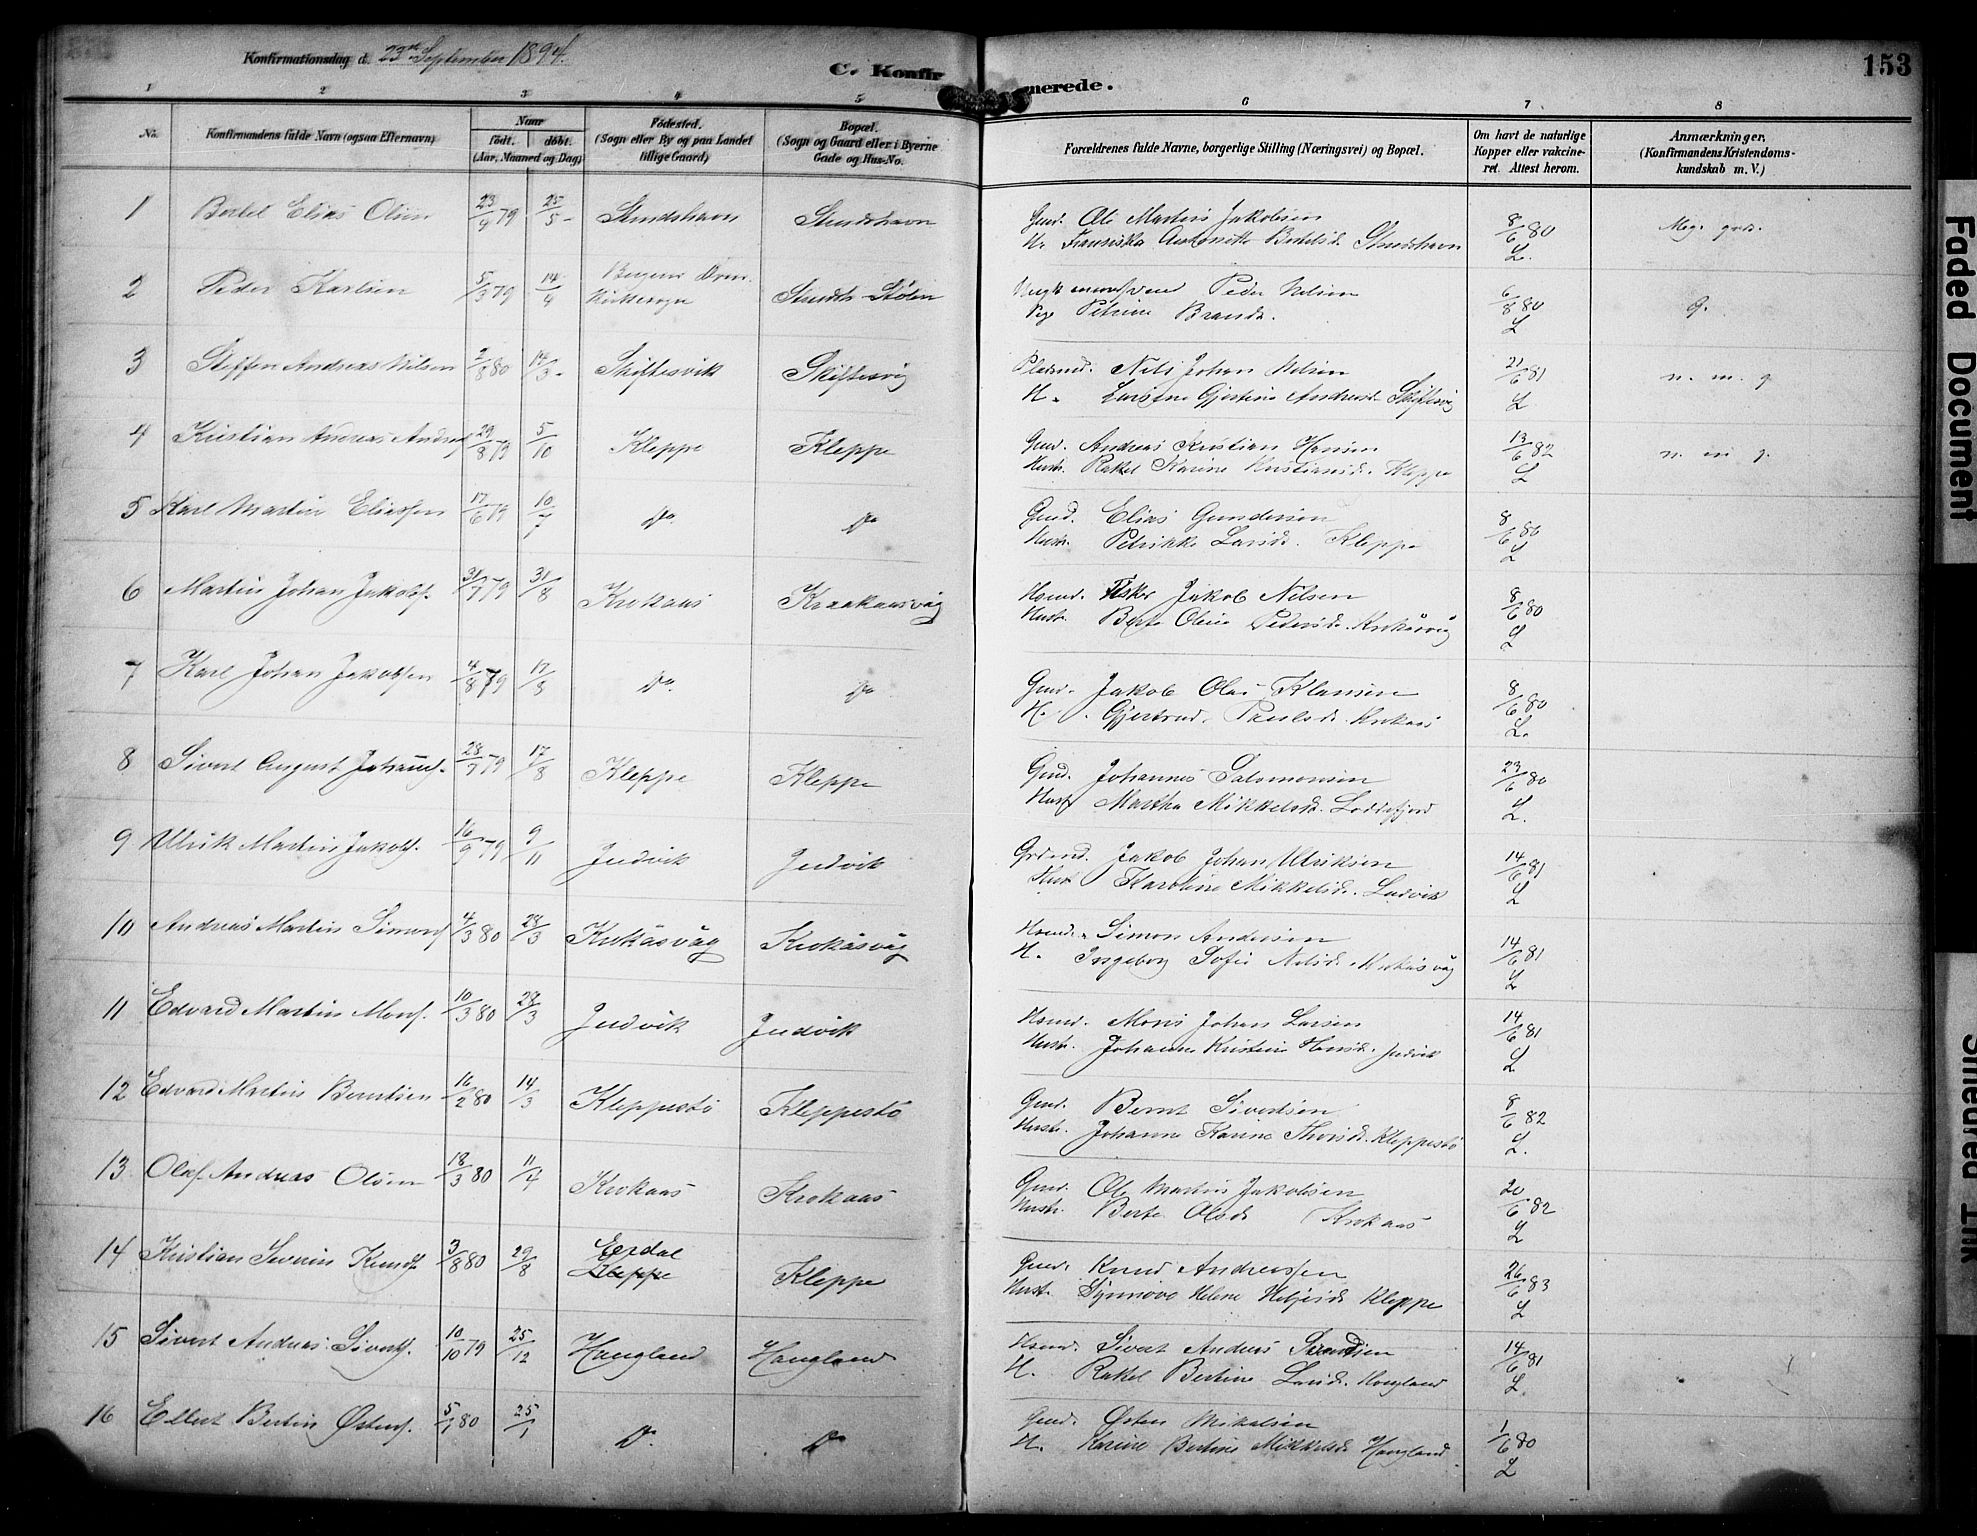 Konfirmationsdag d. 23de September 1894.
C. Konfirmerede.
153
1 2 3 4 5 6 7 8
No.
Konfirmandens fulde Navn (ogsaa Efternavn)
Naar
født. døbt.
(Aar, Maaned og Dag)
Fødested.
(Sogn eller By og paa Landet
tillige Gaard)
Bopæl.
(Sogn og Gaard eller i Byerne
Gade og Hus-No.
Forældrenes fulde Navne, borgerlige Stilling (Næringsvei) og Bopæl.
Om havt de naturlige
Kopper eller vakcine-
ret. Attest herom.
Anmærkninger.
(Konfirmandens Kristendoms-
kundskab m. V.)
1 Bertel Elias Olsen 23/4 79 25/5 - Strudshavn Strudshavn
Gmd. Ole Martin Jakobsen
H. Fransiska Antonette Bertelsd. Strudshavn 8/6 80 L. Meg. god.
2 Peder Karlsen 5/3 79 14/4 Bergens Dom-
kirkesogn
Peder Nilsen
Pige Petrine Brandt. 6/8 80 L G.
3 Steffen Andreas Nilsen 2/8 80 14/3 - Skiftesvik Skiftesvig
Pladsmd. Nils Johan Nilsen
H. Lursine Gjertine Andreasd. Skiftesvig 21/6 81 L n. m. g.
4 Kristian Andreas Andreas 29/8 79 5/10 Kleppe Kleppe
Gmd. Andreas Kristian Hansen
Hustr. Rakel Karine Kristiansd. Kleppe 13/6 82 L n. m g.
5 Karl Martin Eliassen 17/6 79 10/7 Do Do
Gmd. Elias Gundersen
Hustr. Petrikke Larsd. Kleppe 8/6 80 L
6 Martin Johan Jakobs. 31/7 79 31/8 Krokaas Kraakaasvåg
Husmd. Fisker Jakob Nilsen
Hustr. Berte Oline Pedersd. Krokåsvåg 8/6 80 L
7 Karl Johan Jakobsen 4/8 79 17/8 Do. Do
Gmd. Jakob Olai Klausen
H. Gjertrud Paulsd. Krokaas 8/6 80 L.
8 Sivert August Johans. 28/7 79 17/8 Kleppe Kleppe
Gmd. Johannes Salomonsen
Hustr Martha Mikkelsd. Loddefjord 23/6 80 L.
9 Ulrik Martin Jakobs. 16/9 79 9/11 Judvik Judvik
Grdmd. Jakob Johan Ulriksen
Hust Karoline Mikkelsd. Ludvik 14/6 81 L
10 Andreas Martin Simons 4/3 80 28/3 Krokåsvåg Krokåsvåg
Husmd. Simon Andersen
H. Ingeborg Sofie Nilsd. Krokåsvåg 14/6 81 L
11 Edvard Martin Mons. 10/3 80 28/3 Judvik Judvik
Husmd. Mons Johan Larsen
Hustr. Johanne Kristine Hansd. Judvik 14/6 81 L
12 Edvard Martin Berntsen 16/2 80 14/3 Kleppestø Kleppestø
Gmd. Bernt Sivertsen
Hustr. Johanne Karine Thorsd. Kleppestø 8/6 82 L.
13 Olaf Andreas Olsen 18/3 80 11/4 Krokaas Krokaas
Gmd. Ole Martin Jakobsen
Hustr. Berte Olsd Krokaas 20/6 82 L
14 Kristian Severin Knuds. 3/8 80 29/8 Eerdal
Kleppe Kleppe
Gmd. Knud Andreassen
Hust. Synnøve Helene Heljesd. Kleppe 26/6 83 L
15 Sivert Andreas Siverts. 10/10 79 25/12 Haugland Haugland
Husmd. Sivert Andreas
H. Rakel Bertine Larsd. Haugland 14/6 81 L.
16 Ellert Bertin Østens. 5/1 80 25/1 Do. Do
Gmd. Østen Mikalsen
H. Karine Bertine Mikkelsd. Haugland 1/6 80 L
Faded Document
Smeared Ink